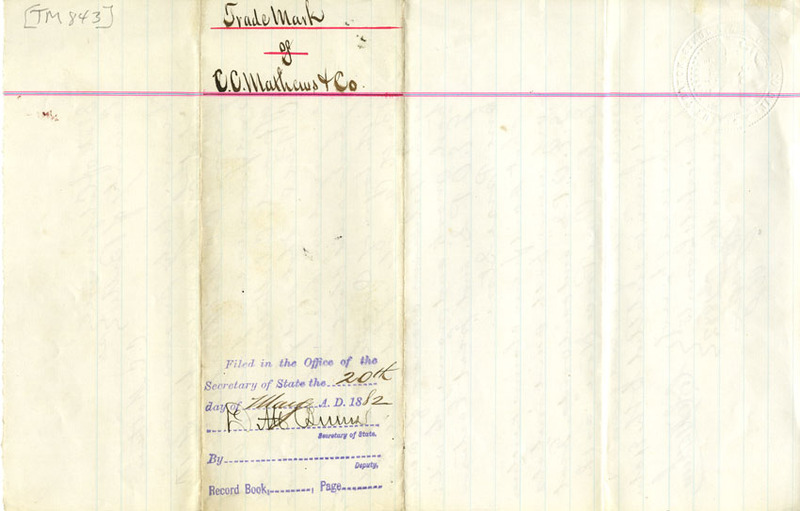 [TM 843]
Trade Mark
of
C.C. Mathews & Co.
Filed in the Office of the
Secretary of State the 20th
day of May A. D. 1882
Secretary of State.
By
Deputy,
Record Book, , Page